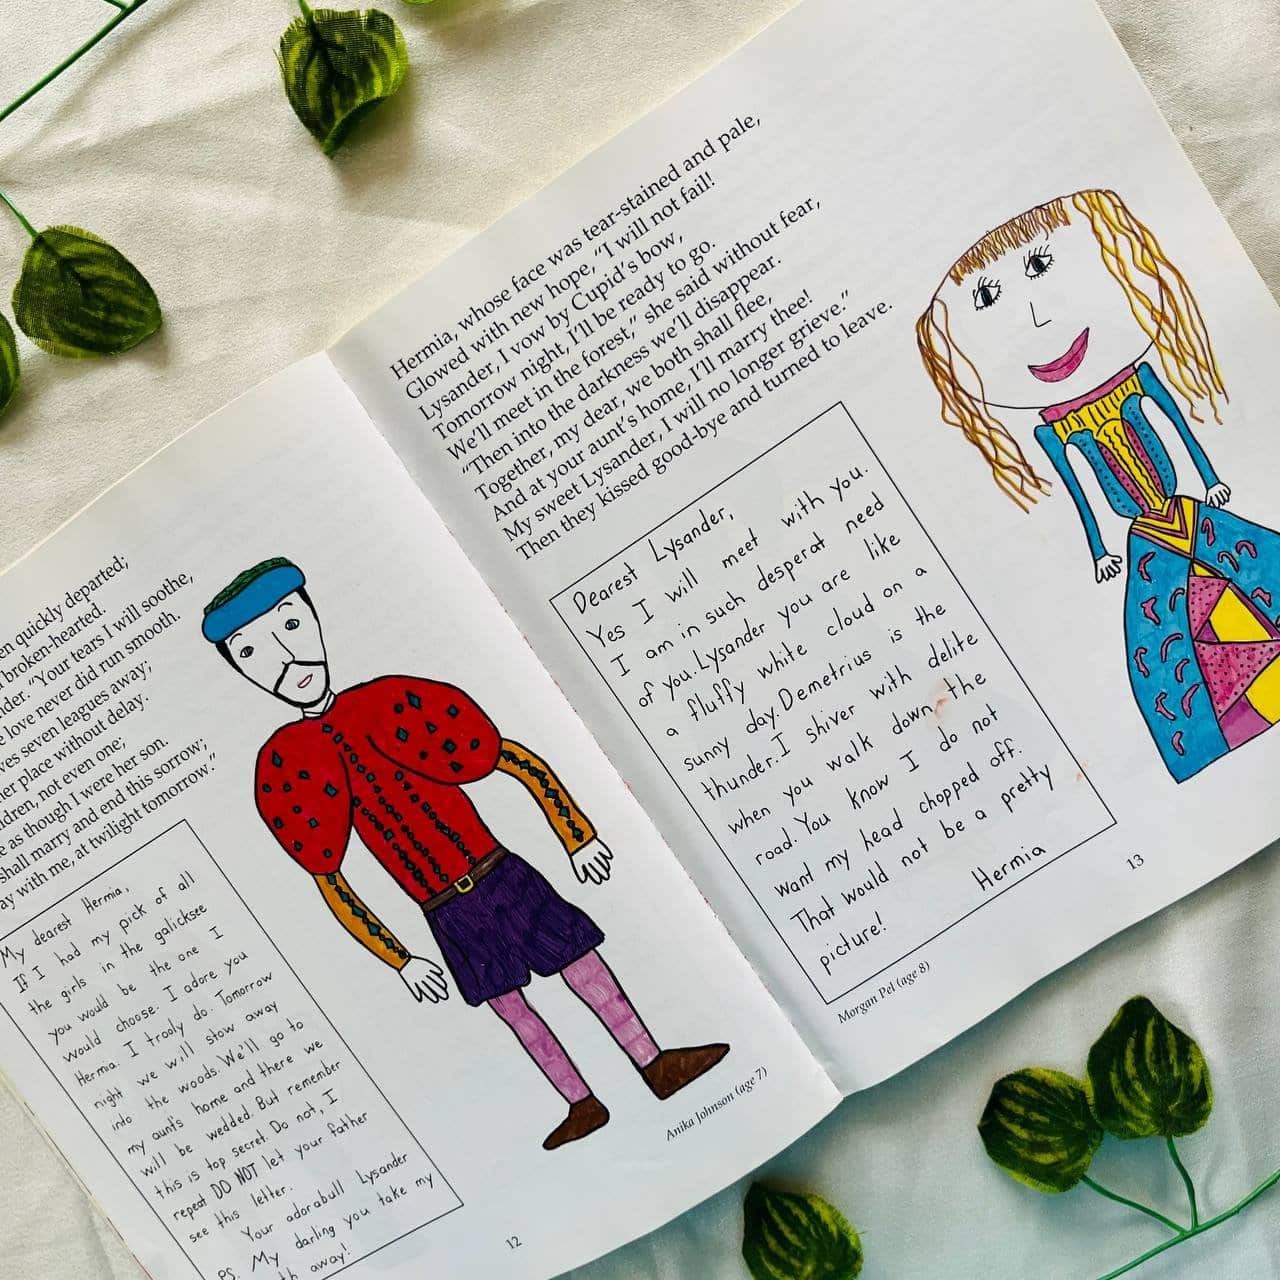 en quickly departed;
broken-hearted.
nder. "Your tears I will soothe,
e love never did run smooth.
ves seven leagues away;
her place without delay.
ildren, not even one;
e as though I were her son.
shall marry and end this sorrow;
ay with me, at twilight tomorrow."
My dearest Hermia,
If I had my pick of all
the girls in the galicksee
you would be the one I
would choose. I adore you
Hermia. I trooly do. Tomorrow
night we will stow away
into the woods. We'll go to
my aunt's home and there we
will be wedded. But remember
this is top secret. Do not, I
repeat DO NOT let your father
see this letter.
Your adorabull Lysander
PS. My darling you take my
th away!
Anika Johnson (age 7)
12
Hermia, whose face was tear-stained and pale,
Glowed with new hope, "I will not fail!
Lysander, I vow by Cupid's bow,
Tomorrow night, I'll be ready to go.
We'll meet in the forest," she said without fear,
"Then into the darkness we'll disappear.
Together, my dear, we both shall flee,
And at your aunt's home, I'll marry thee!
My sweet Lysander, I will no longer grieve."
Then they kissed good-bye and turned to leave.
Dearest Lysander,
Yes I will meet with you.
I am in such desperat need
of you. Lysander you are like
a fluffy white cloud on a
sunny day. Demetrius is the
thunder. I shiver with delite
when you walk down the
road. You know I do not
want my head chopped off.
That would not be a pretty
picture!
Hermia
Morgan Pel (age 8)
13